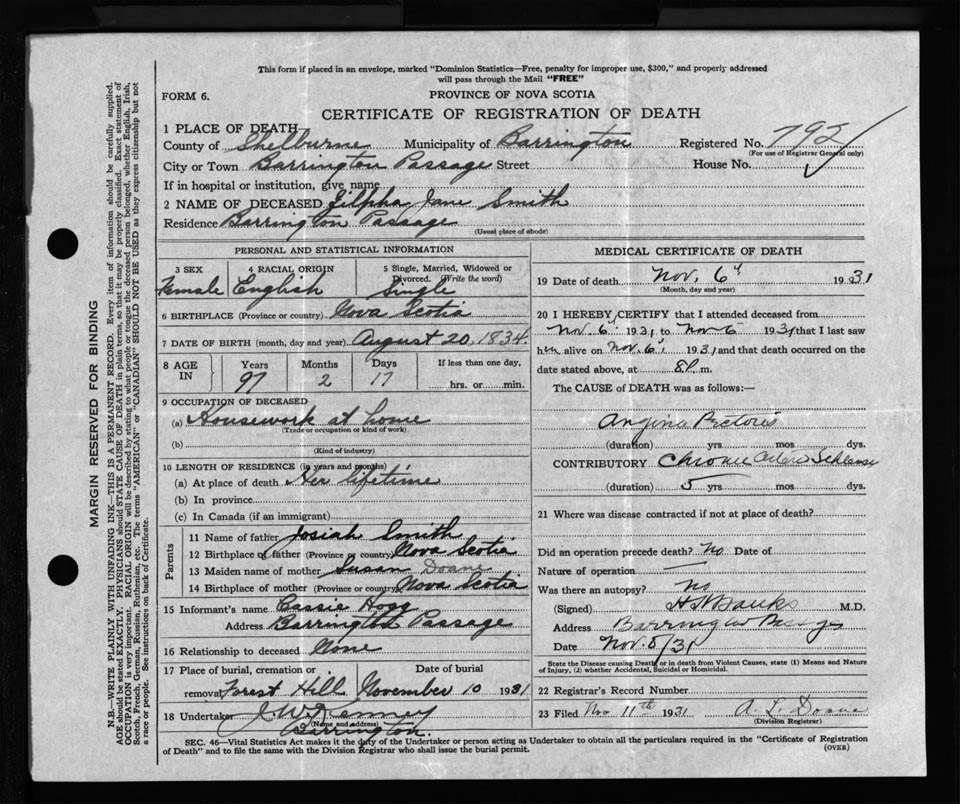 This form if placed in an envelope, marked "Dominion Statistics—Free, penalty for improper use, $300," and properly addressed
will pass through the Mail "FREE"
FORM 6.
PROVINCE OF NOVA SCOTIA
CERTIFICATE OF REGISTRATION OF DEATH
1 PLACE OF DEATH
County of Shelburne Municipality of Barrington Registered No. 792
(For use of Registrar General only)
City or Town Barrington Passage Street House No.
If in hospital or institution, give name
2 NAME OF DECEASED Zilpha Jane Smith
Residence Barrington Passage
(Usual place of abode)
PERSONAL AND STATISTICAL INFORMATION
3 SEX 4 RACIAL ORIGIN 5 Single, Married, Widowed or
Divorced. (Write the word)
Female English Single
6 BIRTHPLACE (Province or country) Nova Scotia
7 DATE OF BIRTH (month, day and year) August 20, 1834
8 AGE IN Years Months Days If less than one day,
97 2 17 hrs. or min.
9 OCCUPATION OF DECEASED
(a) Housework at home
(Trade or occupation or kind of work)
(b)
(Kind of industry)
10 LENGTH OF RESIDENCE (in years and months)
(a) At place of death Her lifetime
(b) In province
(c) In Canada (if an immigrant)
Parents
11 Name of father Josiah Smith
12 Birthplace of father (Province or country) Nova Scotia
13 Maiden name of mother Susan Doane
14 Birthplace of mother (Province or country) Nova Scotia
15 Informant's name Cassie Hogg
Address Barrington Passage
16 Relationship to deceased None
17 Place of burial, cremation or Date of burial
removal Forest Hill November 10 1931
18 Undertaker J W Kenney
(Name and address)
Barrington.
MEDICAL CERTIFICATE OF DEATH
19 Date of death Nov. 6 1931
(Month, day and year)
20 I HEREBY CERTIFY that I attended deceased from
Nov. 6 1931 to Nov 6 1931 that I last saw
her alive on Nov. 6, 1931 and that death occurred on the
date stated above, at 8 P. m.
The CAUSE of DEATH was as follows:—
Angina Pectoris
(duration) yrs mos dys.
CONTRIBUTORY Chronic
(duration) 5 yrs mos dys.
21 Where was disease contracted if not at place of death?
Did an operation precede death? No Date of
Nature of operation —
Was there an autopsy? No
(Signed) Banks M.D.
Address Barrington Passage
Date Nov. 8/31
State the Disease causing Death, or in death from Violent Causes, state (1) Means and Nature
of Injury, (2) whether Accidental, Suicidal or Homicidal.
22 Registrar's Record Number
23 Filed Nov 11th 1931 A. L. Doane
(Division Registrar)
SEC. 46—Vital Statistics Act makes it the duty of the Undertaker or person acting as Undertaker to obtain all the particulars required in the "Certificate of Registration
of Death" and to file the same with the Division Registrar who shall issue the burial permit.
(OVER)
MARGIN RESERVED FOR BINDING
N.B.—WRITE PLAINLY WITH UNFADING INK—THIS IS A PERMANENT RECORD. Every item of information should be carefully supplied.
AGE should be stated EXACTLY. PHYSICIANS should STATE CAUSE OF DEATH in plain terms, so that it may be properly classified. Exact statement of
OCCUPATION is very important. RACIAL ORIGIN will be described by stating to what people or tongue the deceased person belonged, whether English, Irish,
Scotch, French, German, Russian, Ruthenian, etc. The terms "AMERICAN" or "CANADIAN" SHOULD NOT BE USED as they express citizenship but not
a race or people. See instructions on back of Certificate.